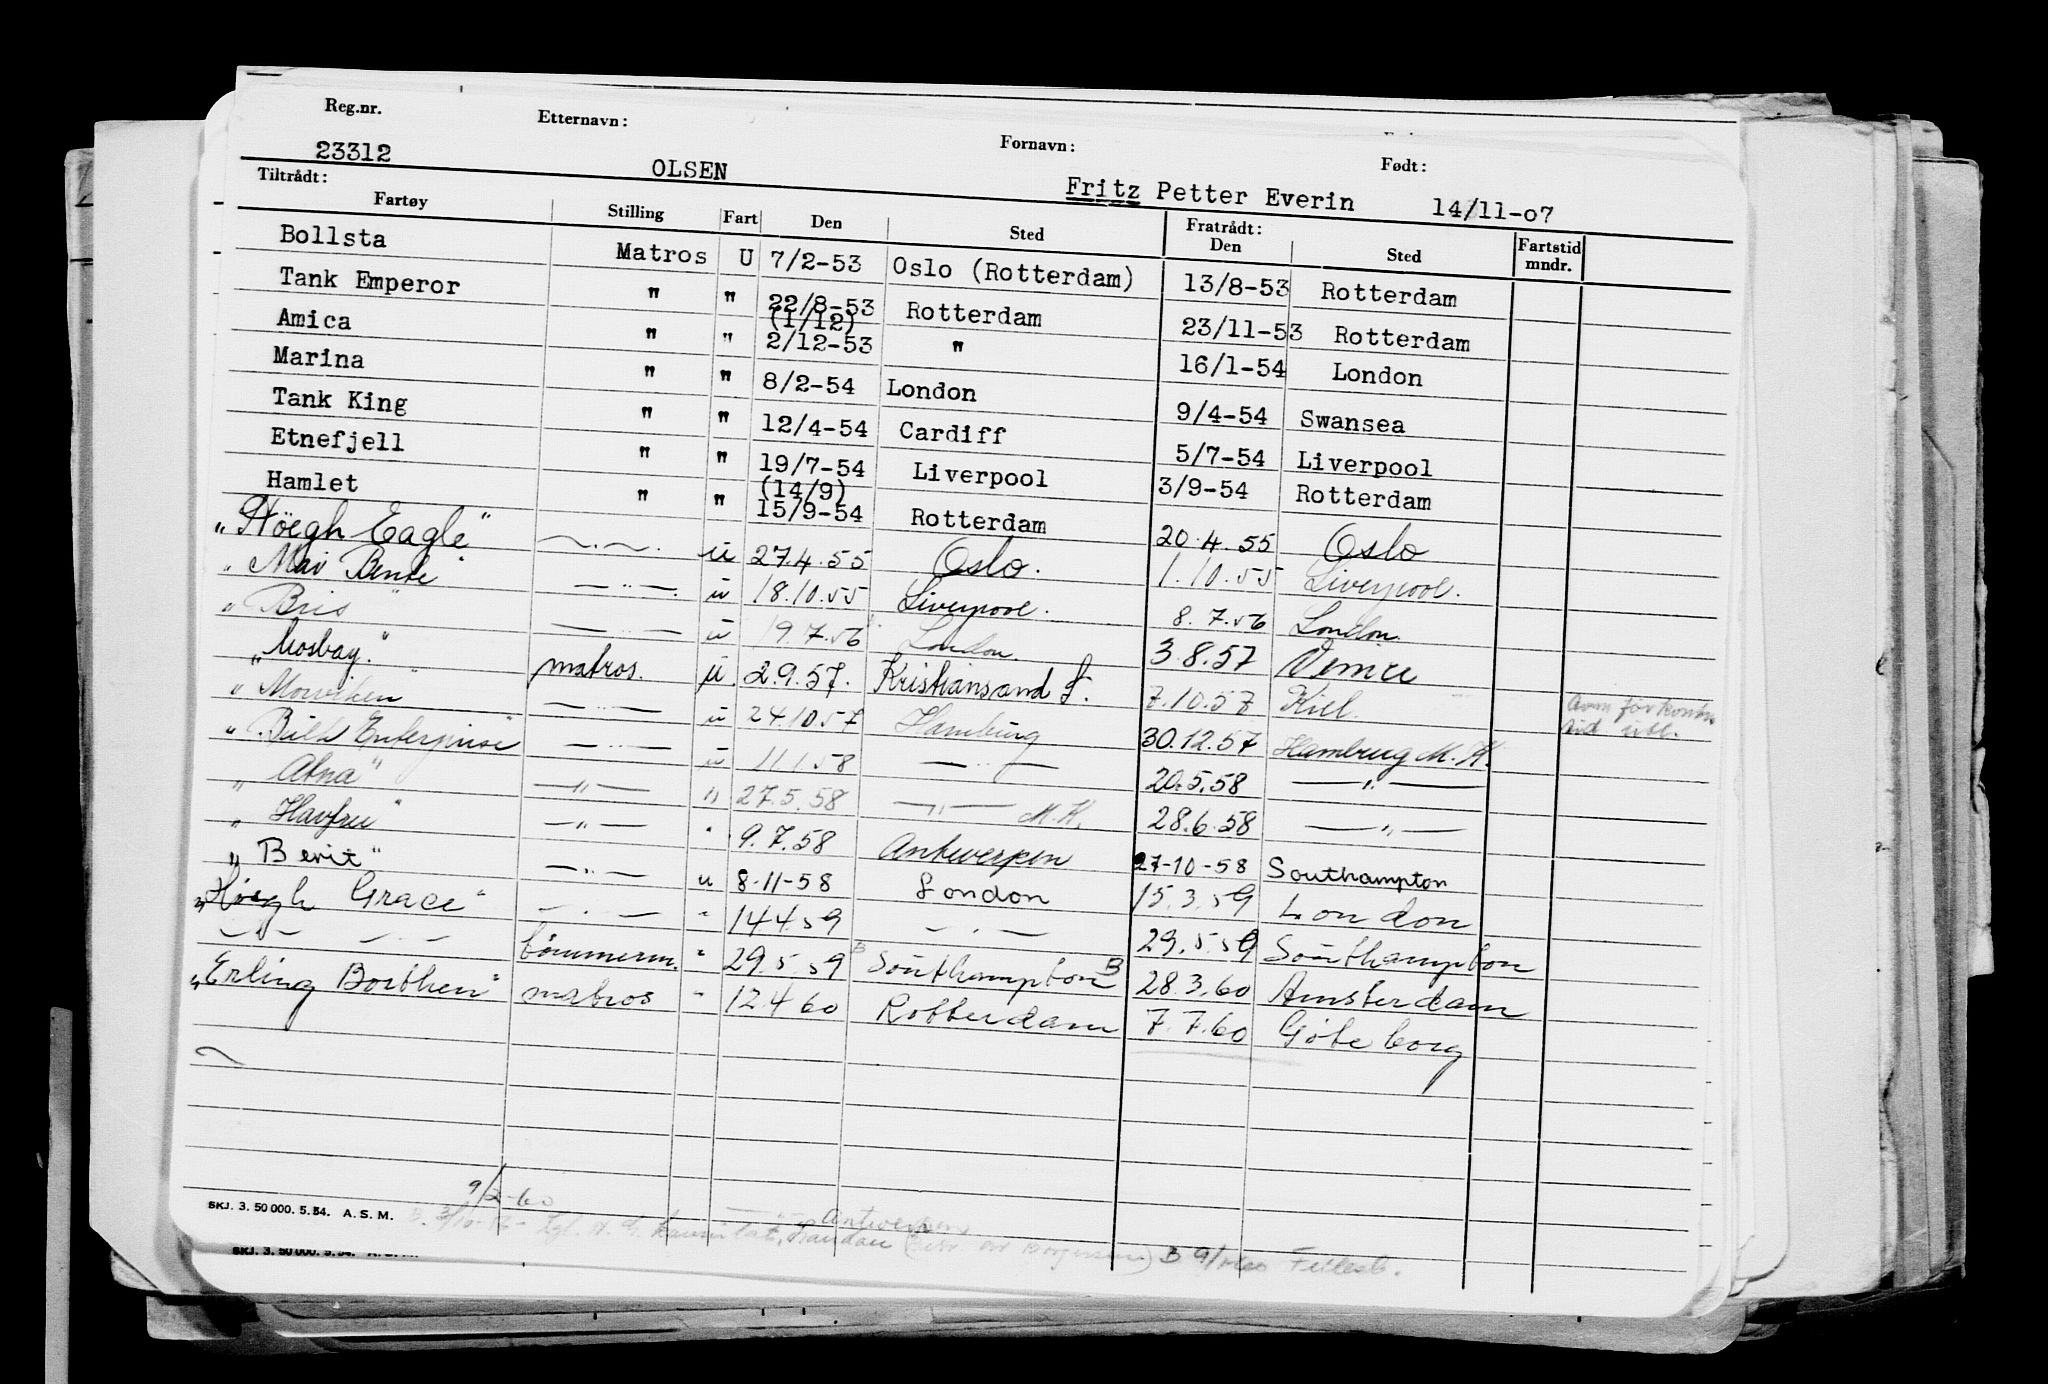 Reg.nr. Etternavn: Fornavn: Født:
23312 OLSEN Fritz Petter Everin 14/11-07
Tiltrådt: Fratrådt:
Fartøy Stilling Fart Den Sted Den Sted Fartstid mndr.
Bollsta Matros U 7/2-53 Oslo (Rotterdam) 13/8-53 Rotterdam
Tank Emperor " " 22/8-53 Rotterdam 23/11-53 Rotterdam
Amica " " (1/12) 2/12-53 " 16/1-54 London
Marina " " 8/2-54 London 9/4-54 Swansea
Tank King " " 12/4-54 Cardiff 5/7-54 Liverpool
Etnefjell " " 19/7-54 Liverpool 3/9-54 Rotterdam
Hamlet " " (14/9) 15/9-54 Rotterdam 20.4.55 Oslo
"Höegh Eagle" —〃— u 27.4.55 Oslo. 1.10.55 Liverpool.
"Mai Bente" —〃— u 18.10.55 Liverpool. 8.7.56 London.
"Bris" —〃— u 19.7.56 London. 3.8.57 Venice
"Mosbay." matros. u. 2.9.57. Kristiansand S. 7.10.57 Kiel.
"Morviken" —〃— u 24.10.57 Hamburg 30.12.57 Hamburg M.K.
"Bulk Enterprise" —〃— u 11.1.58 —〃— 20.5.58 —〃—
"Atna" —〃— " 27.5.58 —〃— M.K. 28.6.58 —〃—
"Havfru" —〃— " 9.7.58 Antwerpen 27-10-58 Southampton
"Berit" —〃— u 8-11-58 London 15.3.59 London
"Höegh Grace" —〃— " 14.4.59 —〃— 29.5.59 Southampton
—〃— —〃— tömmerm. " 29.5.59 B Southampton B 28.3.60 Amsterdam
"Erling Borthen" matros " 12.4.60 Rotterdam 7.7.60 Göteborg
9/2-60
SKJ. 3. 50 000. 5.54. A.S.M.
Antwerpen
SKJ. 3. 50 000. 5.54. A.S.M.